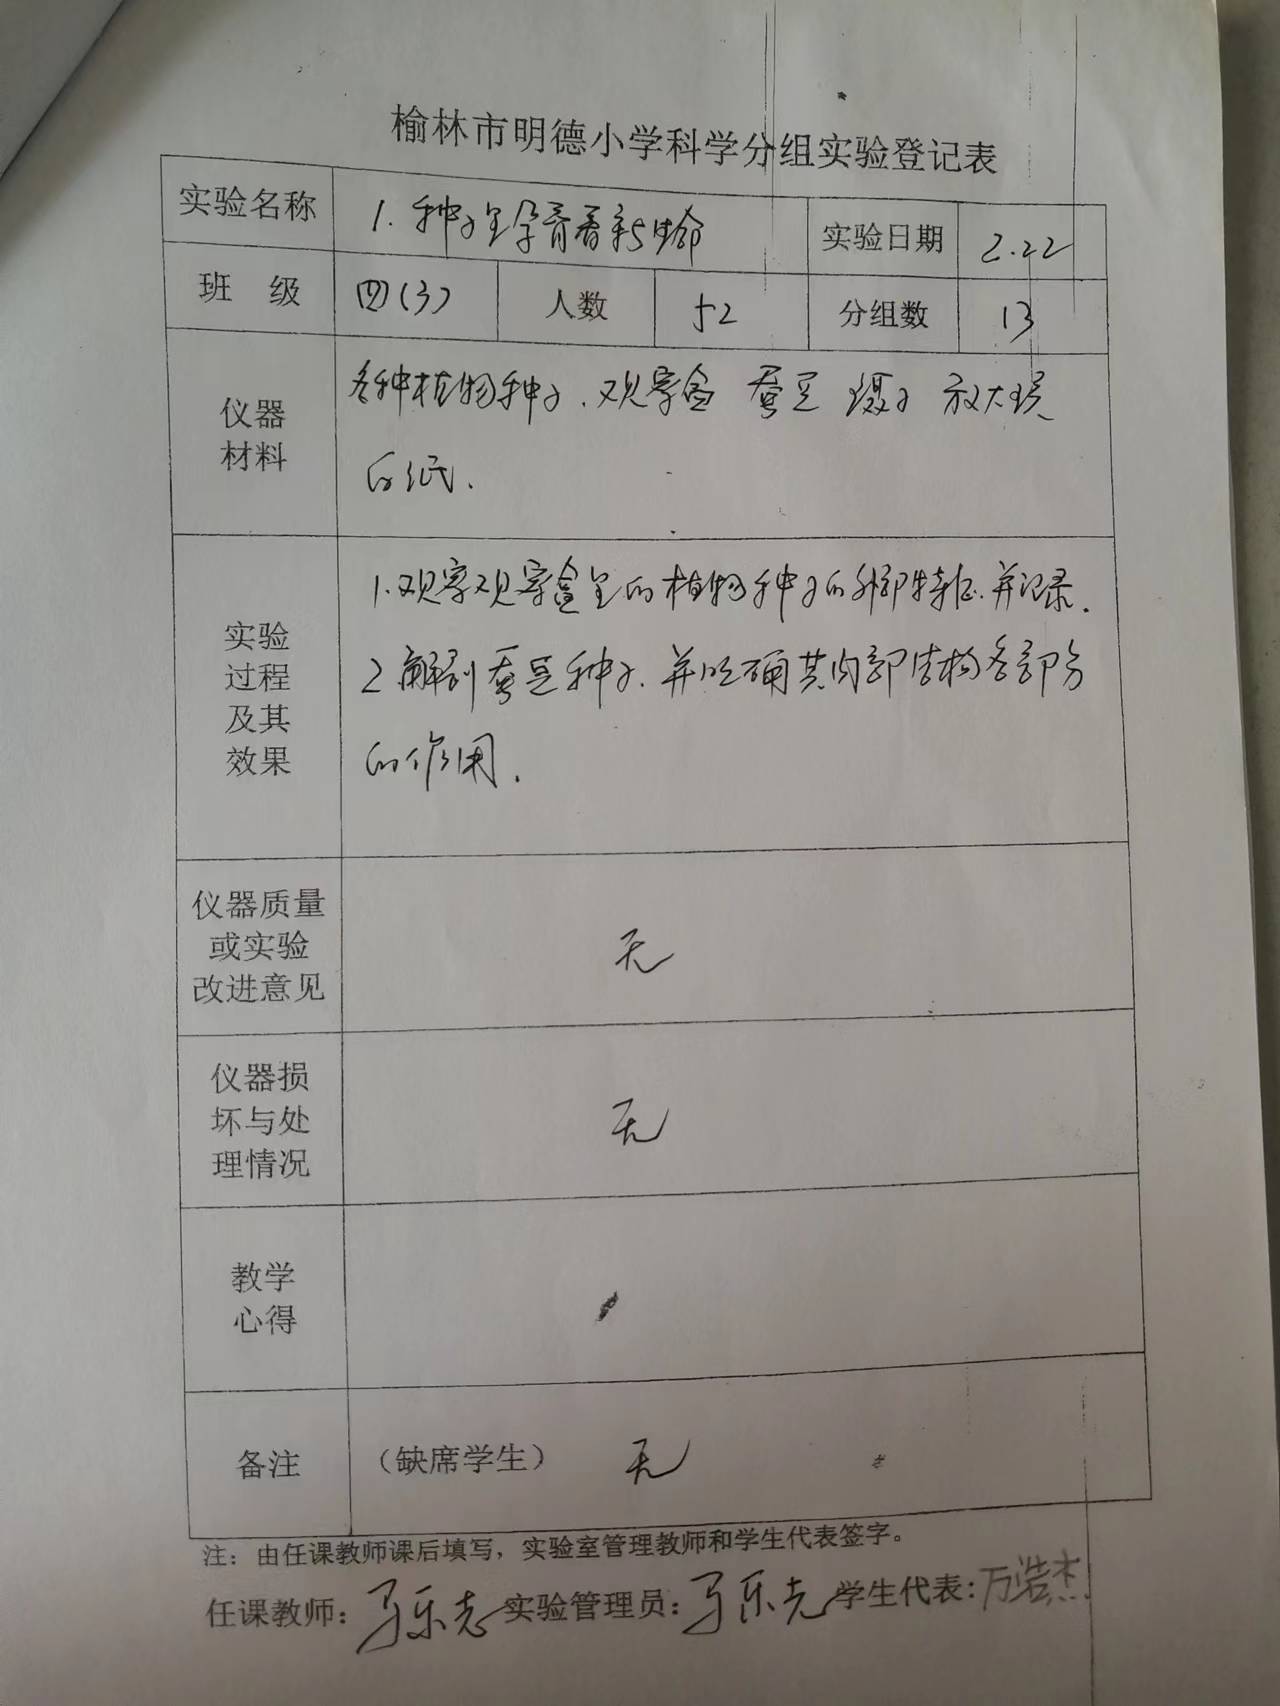 榆林市明德小学科学分组实验登记表
实验名称 1. 种子里孕育着新生命 实验日期 2.22
班 级 四(3) 人数 52 分组数 13
仪器
材料
各种植物种子、观察盒 蚕豆 镊子 放大镜
白纸.
实验
过程
及其
效果
1.观察观察盒里的植物种子的外部特征.并记录.
2 解剖蚕豆种子.并明确其内部结构各部分
的作用.
仪器质量
或实验
改进意见
无
仪器损
坏与处
理情况
无
教学
心得
备注 (缺席学生) 无
注: 由任课教师课后填写, 实验室管理教师和学生代表签字。
任课教师: 马乐志 实验管理员: 学生代表: 万浩杰